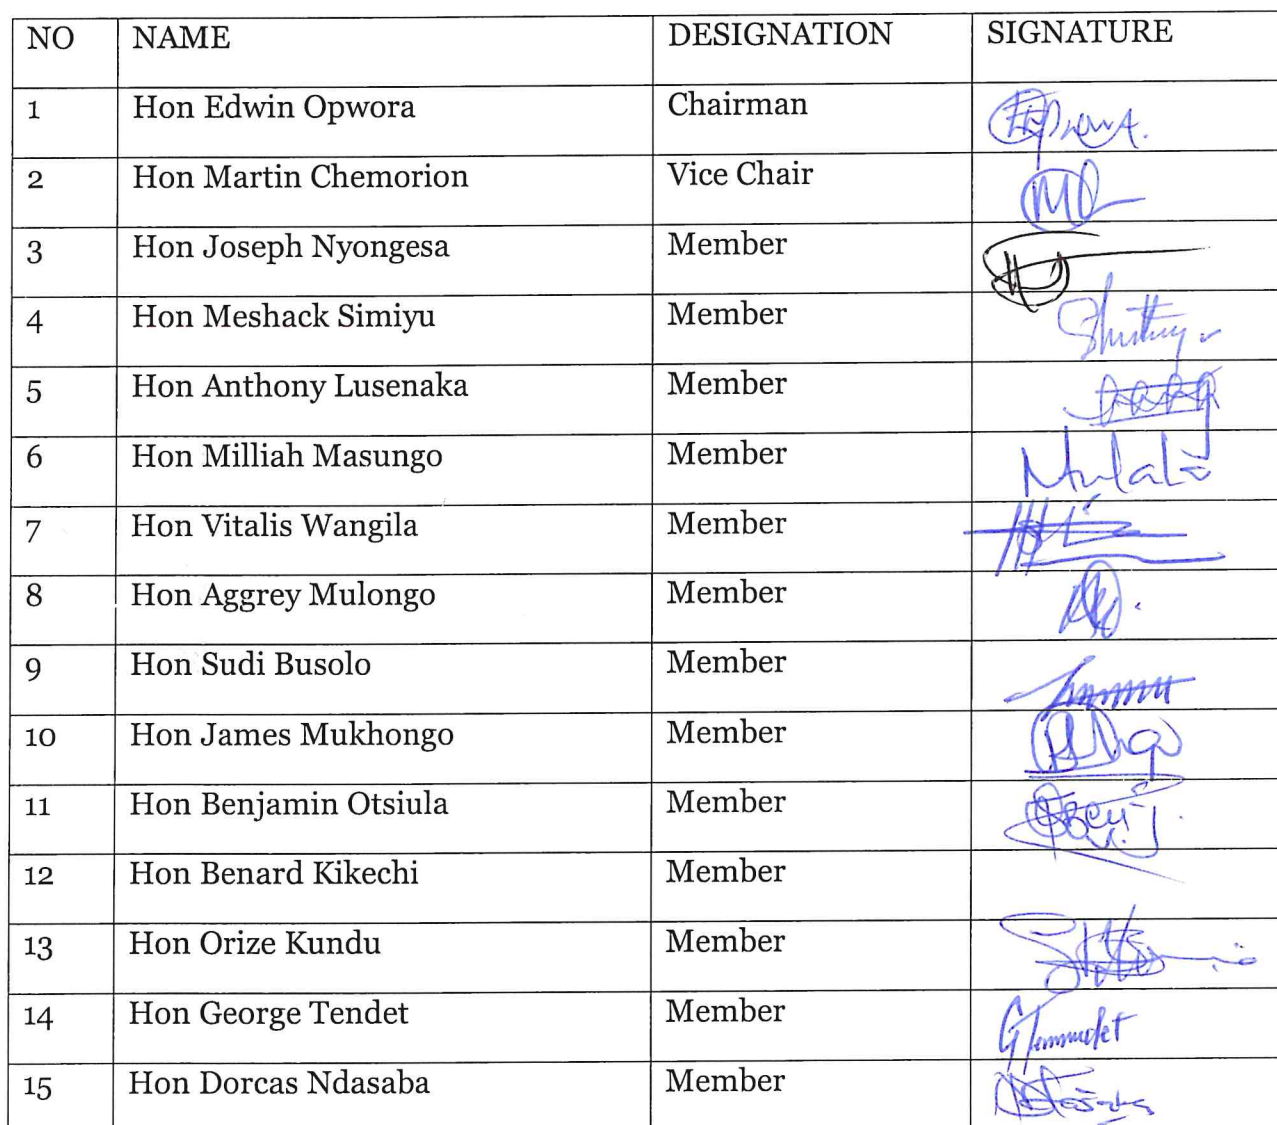 NO NAME DESIGNATION SIGNATURE
1 Hon Edwin Opwora Chairman
2 Hon Martin Chemorion Vice Chair
3 Hon Joseph Nyongesa Member
4 Hon Meshack Simiyu Member
5 Hon Anthony Lusenaka Member
6 Hon Milliah Masungo Member
7 Hon Vitalis Wangila Member
8 Hon Aggrey Mulongo Member
9 Hon Sudi Busolo Member
10 Hon James Mukhongo Member
11 Hon Benjamin Otsiula Member
12 Hon Benard Kikechi Member
13 Hon Orize Kundu Member
14 Hon George Tendet Member
15 Hon Dorcas Ndasaba Member